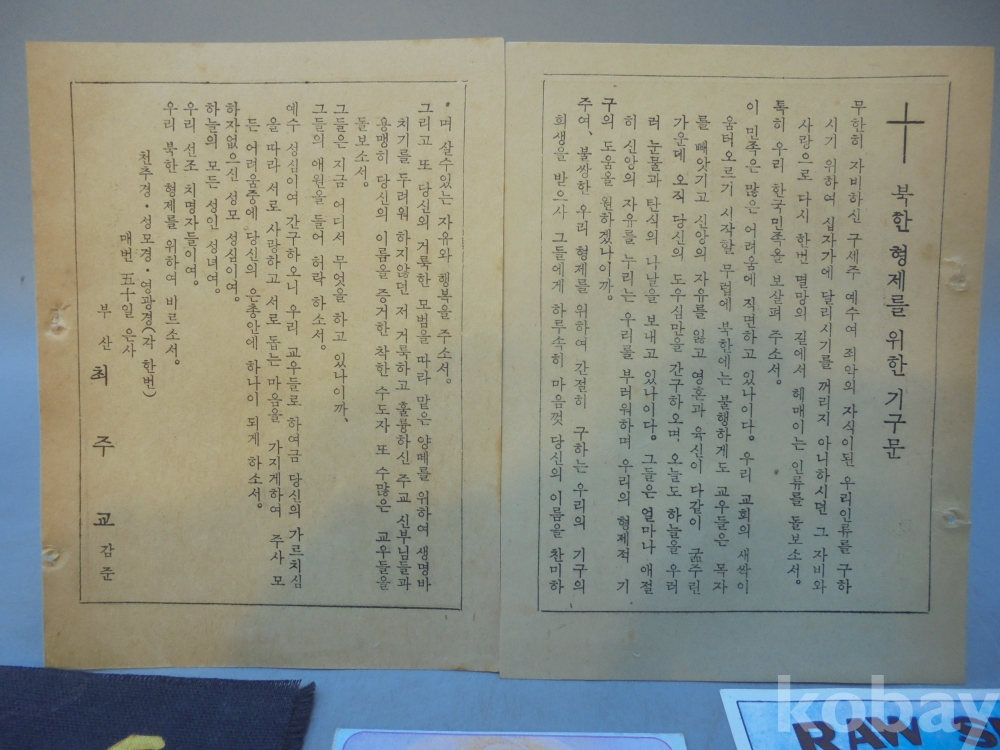 북한 형제를 위한 기구문
무한히 자비하신 구세주 예수여 죄악의 자식이된 우리인류를 구하
시기 위하여 십자가에 달리시기를 꺼리지 아니하시던 그 자비와
사랑으로 다시 한번 멸망의 길에서 헤매이는 인류를 돌보소서。
특히 우리 한국민족을 보살펴 주소서。
이 민족은 많은 어려움에 직면하고 있나이다。 우리 교회의 새싹이
움터오르기 시작할 무렵에 북한에는 불행하게도 교우들은 목자
를 빼앗기고 신앙의 자유를 잃고 영혼과 육신이 다같이 굶주린
가운데 오직 당신의 도우심만을 간구하오며、 오늘도 하늘을 우러
러 눈물과 탄식의 나날을 보내고 있나이다。 그들은 얼마나 애절
히 신앙의 자유를 누리는 우리를 부러워하며 우리의 형제적 기
구의 도움을 원하겠나이까。
주여、 불쌍한 우리 형제를 위하여 간절히 구하는 우리의 기구의
희생을 받으사 그들에게 하루속히 마음껏 당신의 이름을 찬미하
며 살수있는 자유와 행복을 주소서。
그리고 또 당신의 거룩한 모범을 따라 맡은 양떼를 위하여 생명바
치기를 두려워 하지않던 저 거룩하고 훌륭하신 주교 신부님들과
용맹히 당신의 이름을 증거한 착한 수도자 또 수많은 교우들을
돌보소서。
그들은 지금 어디서 무엇을 하고 있나이까、
그들의 애원을 들어 허락 하소서。
예수 성심이여 간구하오니 우리 교우들로 하여금 당신의 가르치심
을 따라 서로 사랑하고 서로 돕는 마음을 가지게하여 주사 모
든 어려움중에 당신의 은총안에 하나이 되게 하소서。
하자없으신 성모 성심이여。
하늘의 모든 성인 성녀여。
우리 선조 치명자들이여。
우리 북한 형제를 위하여 비르소서。
천추경・성모경・영광경(각 한번)
매번 五十일 은사
부산 최 주교 감준
kobay
RAW